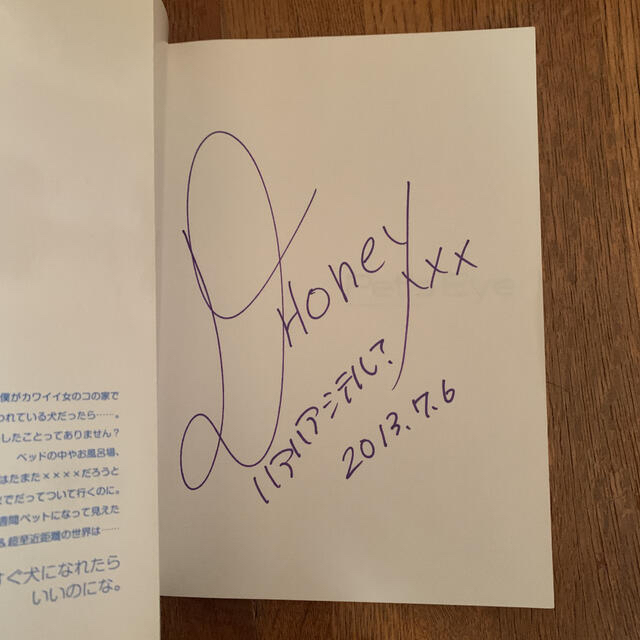 僕がカワイイ女のコの家で
われている犬だったら……。
したことってありません?
ベッドの中やお風呂場、
はたまた××××だろうと
までだってついて行くのに。
週間ペットになって見えた
&超至近距離の世界は……
すぐ犬になれたら
いいのにな。
Honey
xxx
ハアハアシテル?
2013.7.6